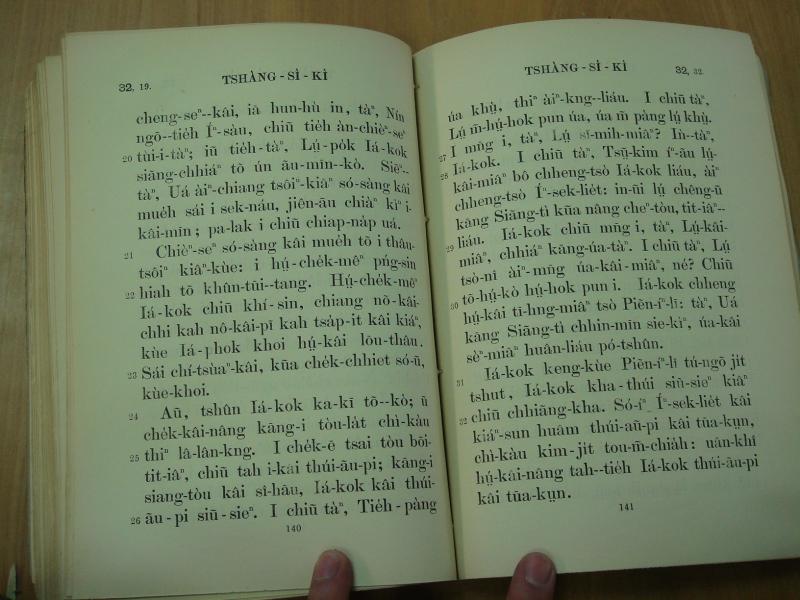 32, 19. TSHÀNG-SÌ-KÌ
cheng-seⁿ--kâi, iā hun-hù in, tàⁿ, Nín
ngō--tie̍h Íⁿ-sàu, chiū tie̍h àn-chièⁿ-seⁿ
20 tùi-i-tàⁿ; iū tie̍h-tàⁿ, Lṳ́-po̍k Iá-kok
siāng-chhiáⁿ tō ún āu-mīn--kò. Siēⁿ--
tàⁿ, Uá àiⁿ-chiang tsôiⁿ-kiâⁿ só-sàng kâi
mue̍h sái i sek-náu, jiên-āu chiàⁿ kìⁿ i-
kâi-mīn; pa-lak i chiū chiap-na̍p uá.
21 Chièⁿ-seⁿ só-sàng kâi mue̍h tō i thâu-
tsôiⁿ kiâⁿ-kùe: i hṳ́-che̍k-mêⁿ pńg-sin
22 hiah tō khûn-tūi--tang. Hṳ́-che̍k-mêⁿ
Iá-kok chiū khí-sin, chiang nō-kâi-
chhi kah nô-kâi-pī kah tsa̍p-it kâi kiáⁿ,
kùe Iá-phok khoi hṳ́-kâi lōu-thâu.
23 Sái chí-tsùaⁿ-kâi, kūa che̍k-chhiet só-ū,
kùe-khoi.
24 Aū, tshûn Iá-kok ka-kī tō--kò; ū
che̍k-kâi-nâng kāng-i tòu-la̍t chì-kàu
25 thiⁿ lâ-lân-kng. I che̍k-ē tsai tòu bōi-
tit-iâⁿ, chiū tah i-kâi thúi-āu-pi; kāng-i
siang-tòu kâi sî-hāu, Iá-kok kâi thúi-
26 āu-pi siū-sieⁿ. I chiū tàⁿ, Tie̍h-pàng
140
TSHÀNG-SÌ-KÌ 32, 32.
úa khṳ̀, thiⁿ àiⁿ-kng--liáu. I chiū tàⁿ,
Lṳ́ m̄-hṳ́-hok pun úa, úa m̄ pàng lṳ́ khṳ̀.
27 I mn̄g i, tàⁿ, Lṳ́ sī-mih-miâⁿ? Ìn--tàⁿ,
28 Iá-kok. I chiū tàⁿ, Tsṳ̄-kim íⁿ-āu lṳ́-
kâi-miâⁿ bô chheng-tsò Iá-kok liáu, àiⁿ
chheng-tsò Íⁿ-sek-lie̍t: in-ūi lṳ́ chêng-ū
kāng Siāng-tì kūa nâng cheⁿ-tòu, tit-iâⁿ--
29 liáu. Iá-kok chiū mn̄g i, tàⁿ, Lṳ́-kâi-
miâⁿ, chhiáⁿ kāng-úa-tàⁿ. I chiū tàⁿ, Lṳ́
tsò-nî àiⁿ-mn̄g úa-kâi-miâⁿ, né? Chiū
30 tō-hṳ́-kò hṳ́-hok pun i. Iá-kok chheng
hṳ́-kâi tī-hng-miâⁿ tsò Piĕn-íⁿ-lī: tàⁿ, Uá
kāng Siāng-tì chhin-mīn sie-kìⁿ, úa-kâi
sèⁿ-miāⁿ huân-liáu pó-tshûn.
31 Iá-kok keng-kùe Piĕn-íⁿ-lī tú-ngō ji̍t
tshut, Iá-kok kha-thúi siū-sieⁿ kiâⁿ
32 chiū chhiāng-kha. Só-íⁿ Íⁿ-sek-lie̍t kâi
kiáⁿ-sun huâm thúi-aū-pi kâi tūa-kṳn,
chì-kàu kim-ji̍t tou-m̄-chia̍h: uân-khî
hṳ́-kâi-nâng tah--tie̍h Iá-kok thúi-āu-pi
kâi tūa-kṳn.
141